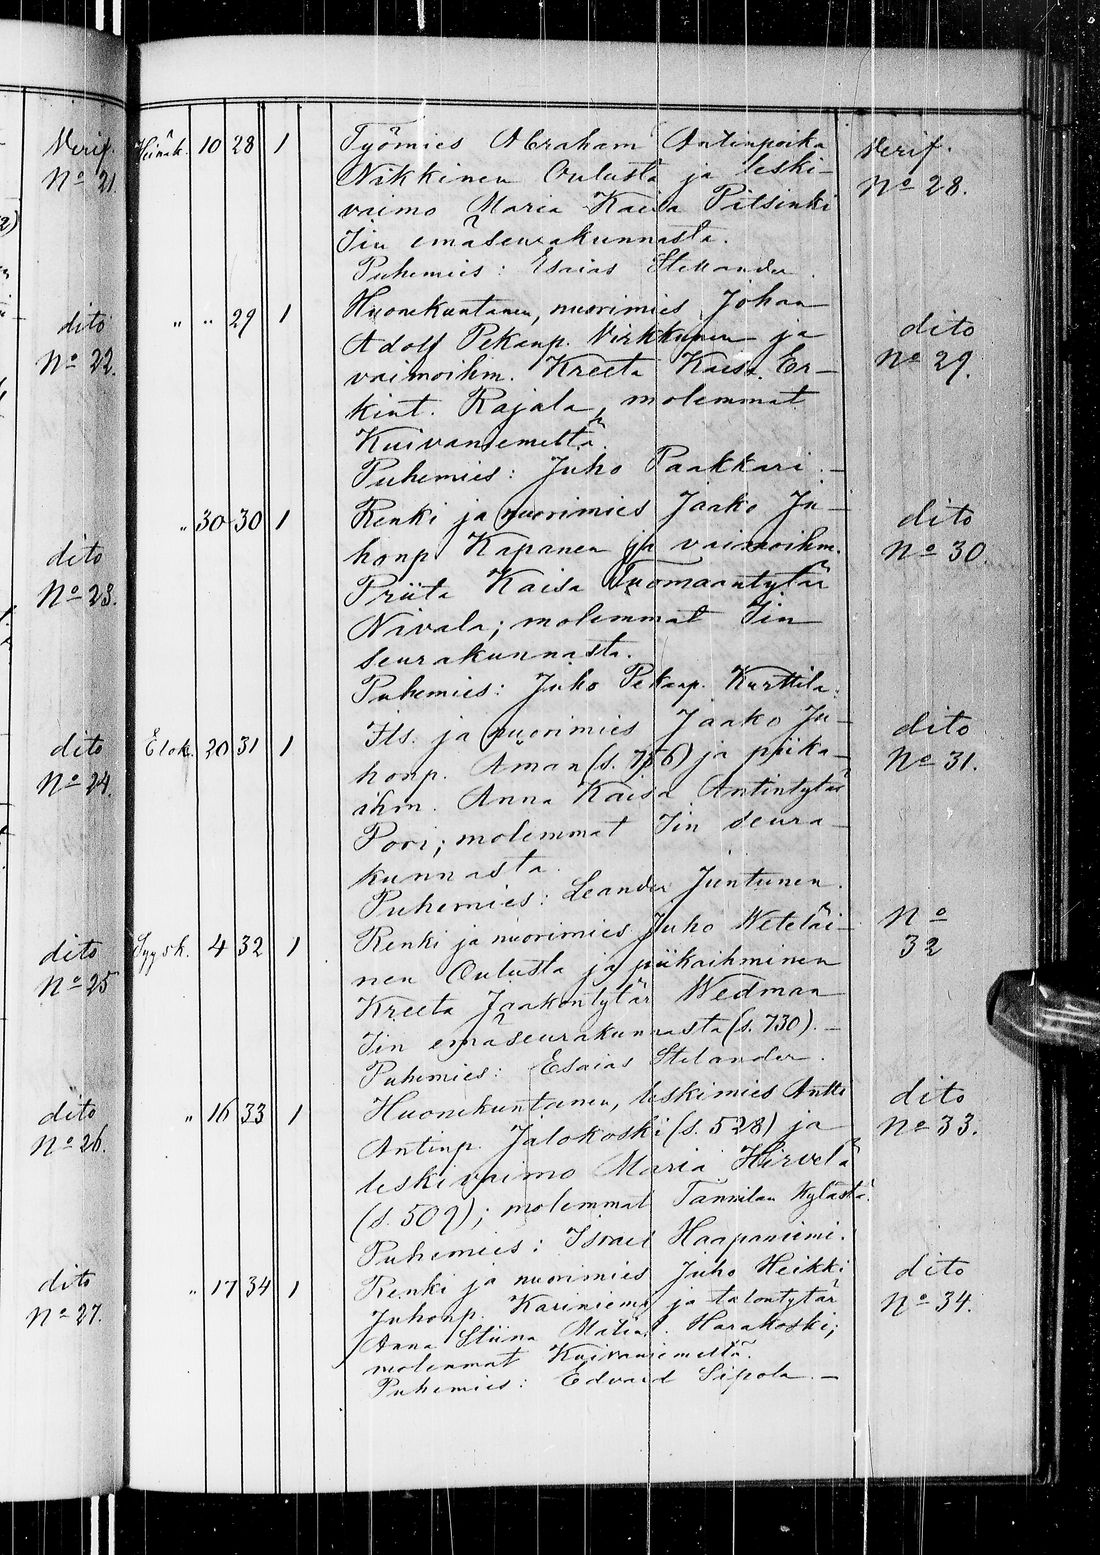 Verif.
No 21.
dito
No 22.
dito
No 23.
dito
No 24.
dito
No 25
dito
No 26.
dito
No 27.
Heinäk. 10 28 1 Työmies Abraham Antinpoika Verif.
Nikkinen Oulusta ja leski- No 28.
vaimo Maria Kaisa Pitsinki
Iin emäseurakunnasta.
Puhemies: Esaias Stelander.
" " 29 1 Huonekuntanen, nuorimies Johan dito
Adolf Pekanp. Virkkunen ja No 29.
vaimoihm. Kreeta Kaisa Er-
kint. Rajala, molemmat
Kuivaniemeltä.
Puhemies: Juho Paakkari. —
" 30 30 1 Renki ja nuorimies Jaako Ju- dito
honp. Kapanen ja vaimoihm. No 30.
Priita Kaisa Tuomaantytär
Nivala; molemmat Iin
seurakunnasta.
Puhemies: Juho Pekanp. Kurttila.
Elok. 20 31 1 Its. ja nuorimies Jaako Ju- dito
honp. Aman (s. 756) ja piika- No 31.
ihm. Anna Kaisa Antintytär
Pori; molemmat Iin seura-
kunnasta.
Puhemies: Leander Juntunen.
Syysk. 4 32 1 Renki ja nuorimies Juho Weteläi- No
nen Oulusta ja piikaihminen 32
Kreeta Jaakontytär Wedman
Iin emäseurakunnasta (s. 730). —
Puhemies: Esaias Stelander.
" 16 33 1 Huonekuntanen, leskimies Antti dito
Antinp. Jalokoski (s. 528) ja No 33.
leskivaimo Maria Hirvelä
(s. 509); molemmat Tannilan kylästä.
Puhemies: Israel Haapaniemi.
" 17 34 1 Renki ja nuorimies Juho Heikki dito
Juhonp. Kariniemi ja talontytär No 34.
Anna Stiina Matiat. Harakoski;
molemmat Kuivaniemeltä.
Puhemies: Edvard Sipola. —